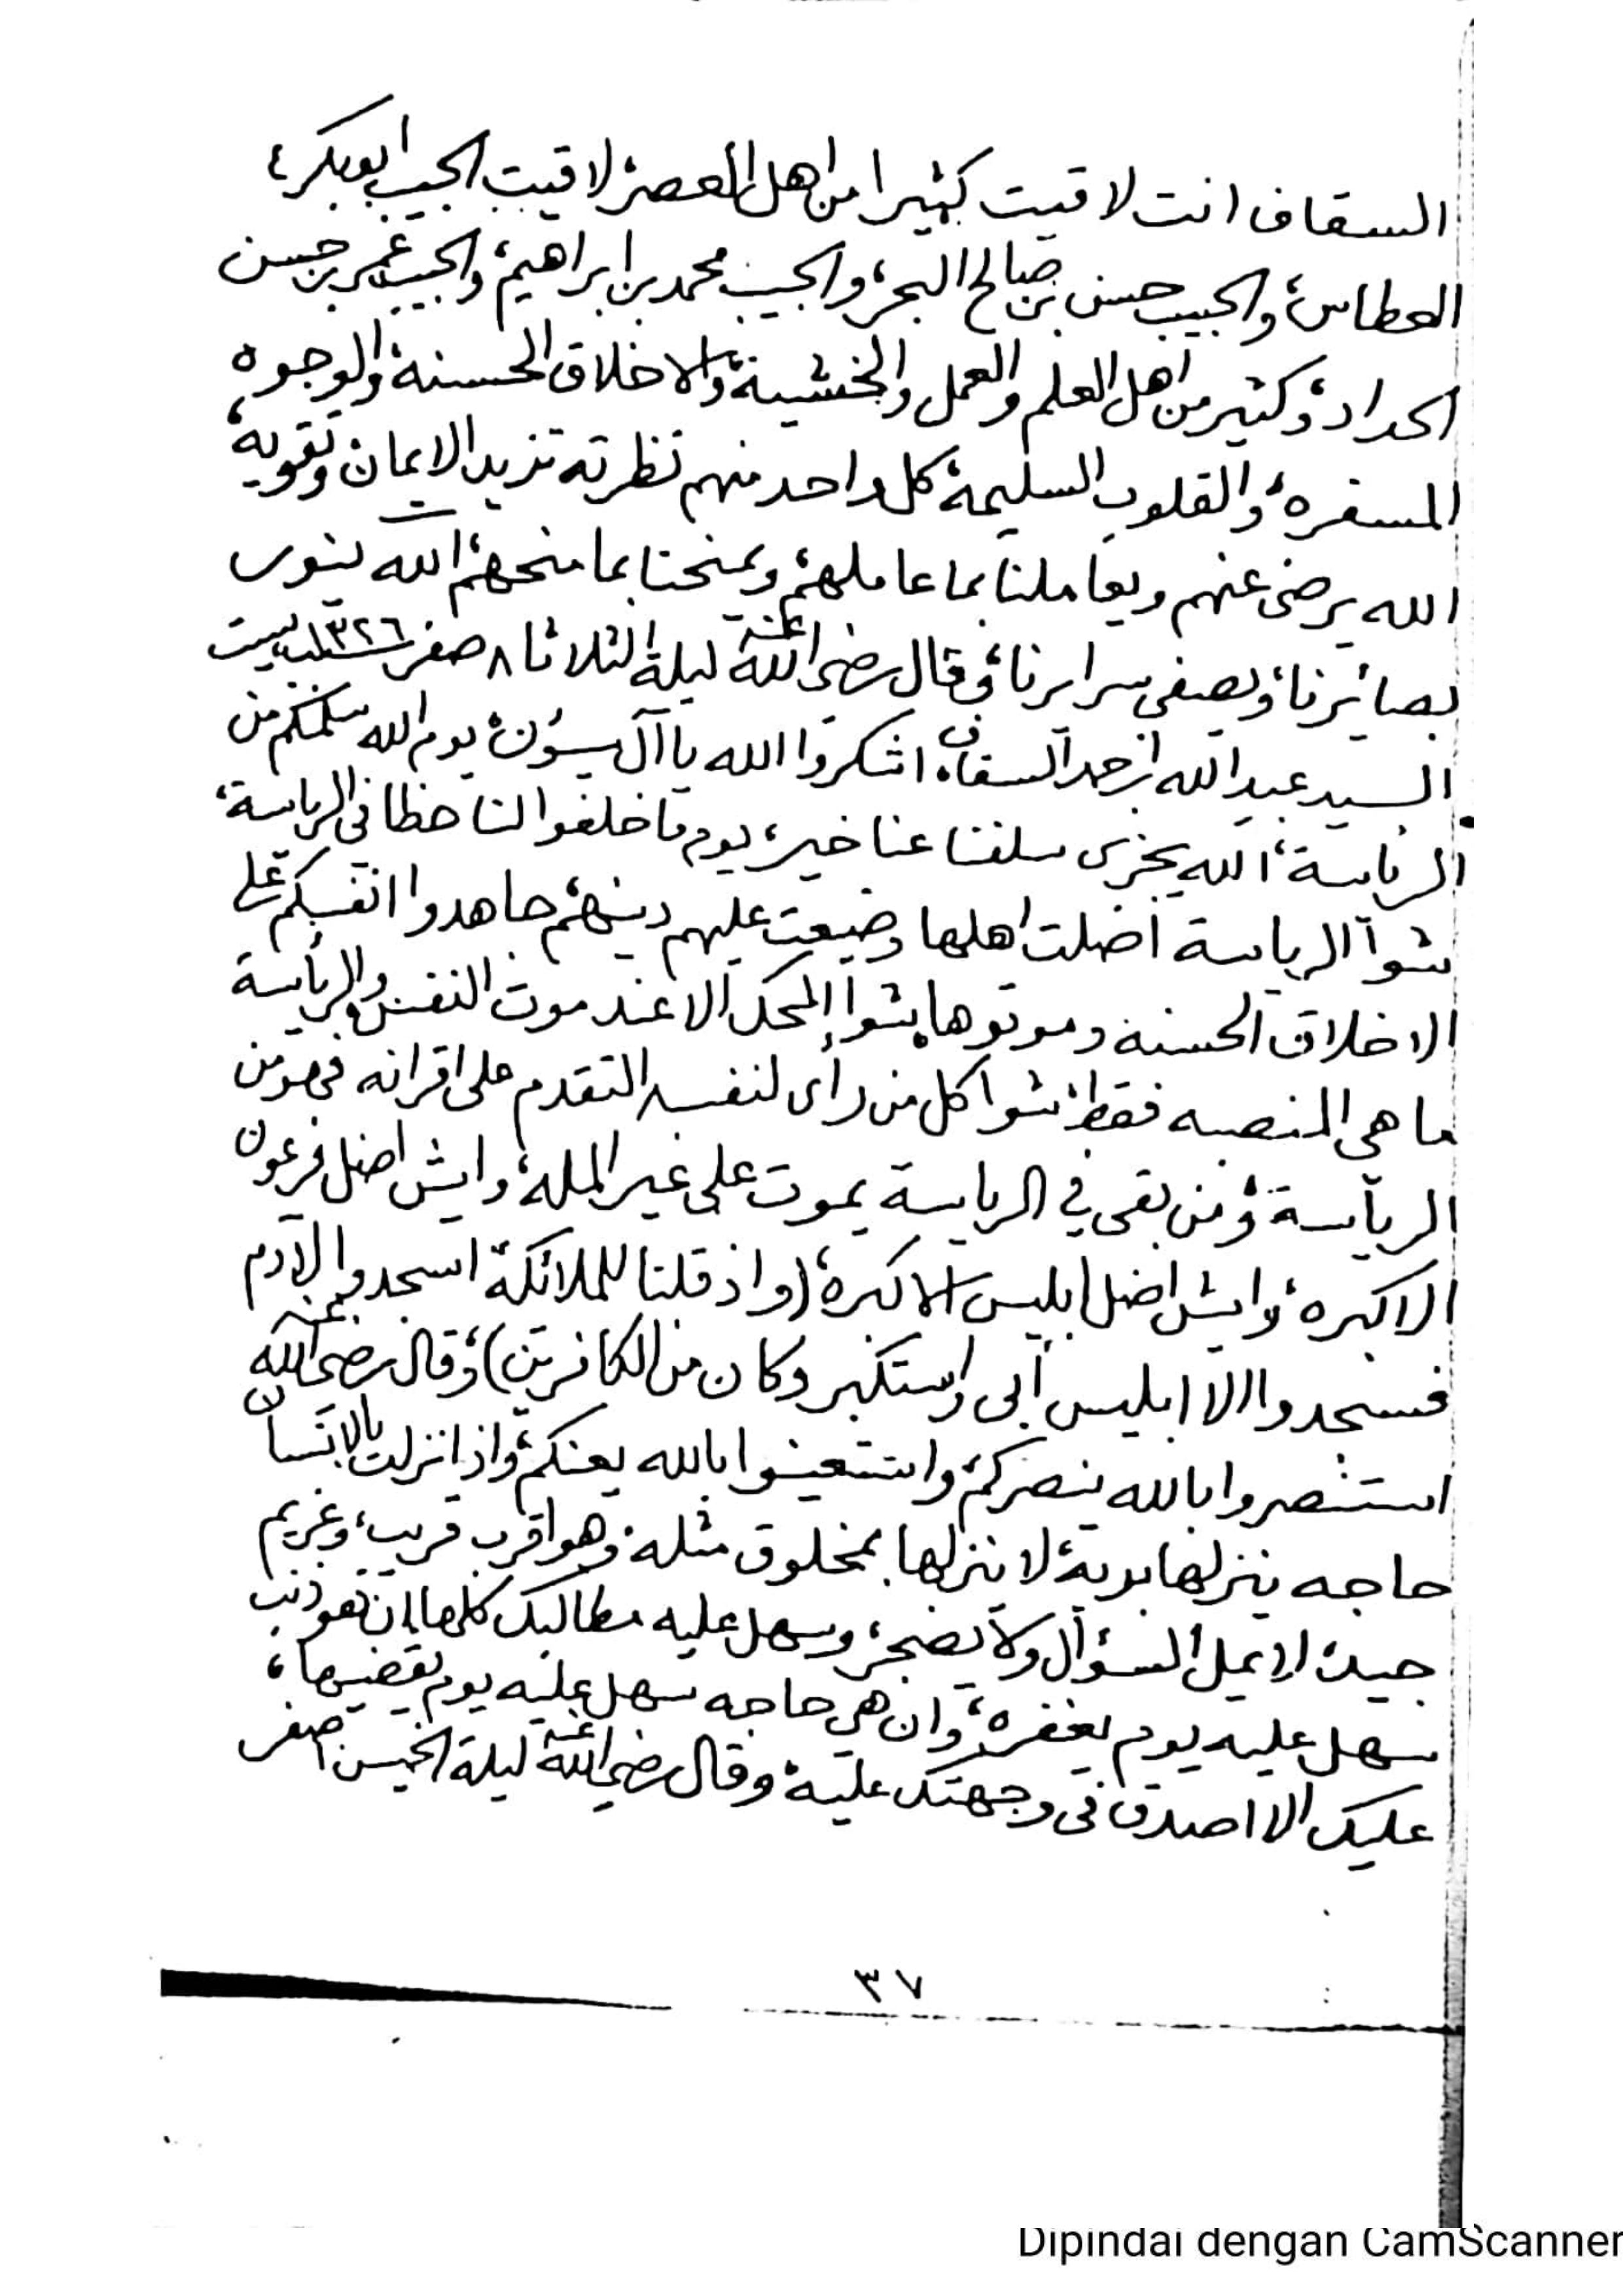 السقاف انت لاقيت كثيرا من اهل العصر، لاقيت الحبيب ابوبكر،
العطاس، والحبيب حسن بن صالح البحر، والحبيب محمد بن ابراهيم، والحبيب عمر بن حسن
الحداد، وكثير من اهل العلم والعمل والخشية، والاخلاق الحسنة، والوجوه
المسفره، والقلوب السليمة، كل واحد منهم نظرته تزيد الايمان وتقويه،
الله يرضى عنهم ويعاملنا بما عاملهم، ويمنحنا بما منحهم، الله ينور
بصائرنا، ويصفى سرايرنا، وقال رضى الله عنه ليلة الثلاثا ٨ صفر ١٣٢٦ ببيت
السيد عبد الله بن حمد السقاف، اشكروا الله يا آل سيؤن، يوم الله سلمكم من
الرئاسة، الله يجزى سلفنا عنا خير، يوم ما خلفوا لنا حظا فى الرياسة،
شوا الرياسة اضلت اهلها وضيعت عليهم دينهم، جاهدوا انفسكم على
الاخلاق الحسنه وموتوها، شوا المحك الا عند موت النفس، والرئاسة
ما هى المنصبه فقط، شوا كل من رأى لنفسه التقدم على اقرانه فهو من
الرياسة، ومن بقى في الرياسة يموت على غير المله، وايش اضل فرعون
الا كبره، وايش اضل ابليس الا كبره، (واذ قلنا للملائكة اسجدوا لآدم
فسجدوا الا ابليس أبى واستكبر وكان من الكافرين)، وقال رضى الله عنه
استنصروا بالله ينصركم، واستعينوا بالله يعنكم، واذا نزلت بالانسان
حاجه ينزلها بربه، لا ينزلها بمخلوق مثله، وهو اقرب قريب، وغريم
جيد، لا يمل السؤال ولا يضجر، وسهل عليه مطالبك كلها، ان هو ذنب
سهل عليه يوم يغفره، وان هي حاجه سهل عليه يوم يقضيها،
عليك الا اصدق فى وجهتك عليه، وقال رضي الله عنه ليلة الخميس صفر
٣٧
Dipindai dengan CamScanner